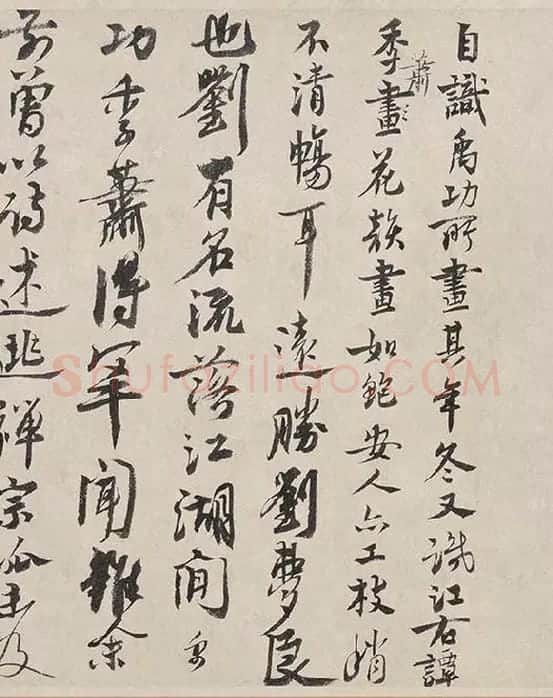 自識禹功所畫其年冬又識江右譚
季蕭畫花畫如鮑安人亦工枝梢
不清暢耳遠勝劉夢良
也劉有名流落江湖間禹
功季蕭得罕聞余
前曾以詩述逃禪宗派未及
shufaziliao.COM